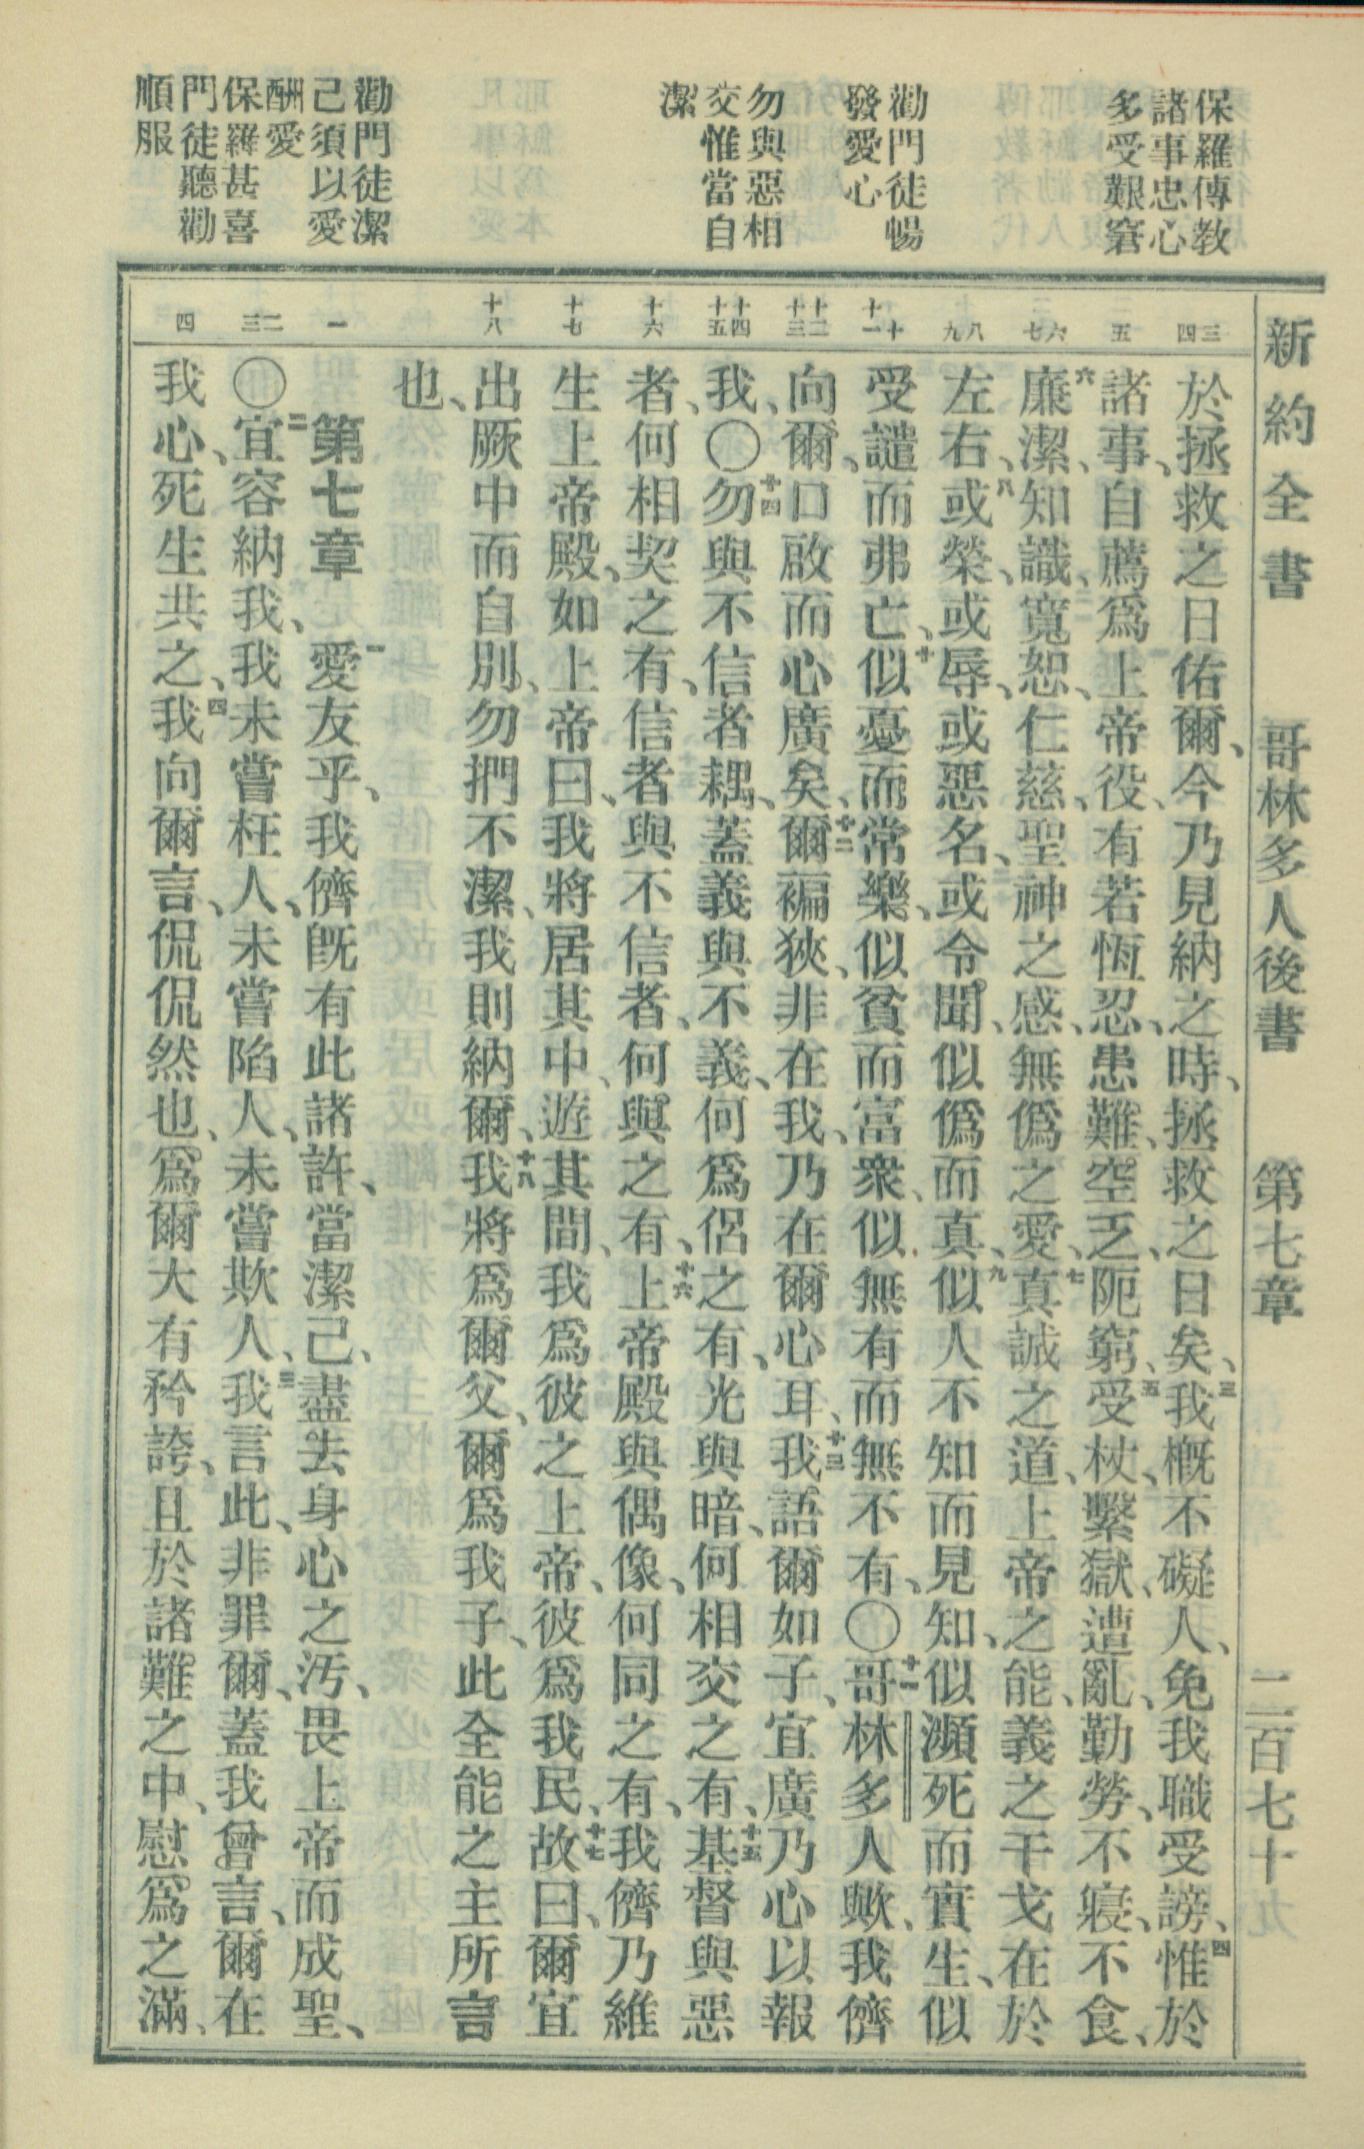 保羅傳教
諸事忠心
多受艱窘
勸門徒暢
發愛心
勿與惡相
交惟當自
潔
勸門徒潔
己須以愛
酬愛
保羅甚喜
門徒聽勸
順服
新約全書 哥林多人後書 第七章 二百七十九
三
四
五
六
七
八
九
十
十一
十二
十三
十四
十五
十六
十七
十八
一
二
三
四
於拯救之日佑爾、今乃見納之時、拯救之日矣、三我概不礙人、免我職受謗、四惟於
諸事、自薦爲上帝役、有若恆忍、患難、空乏、阨窮、五受杖、繫獄、遭亂、勤勞、不寢、不食、
六廉潔、知識、寬恕、仁慈、聖神之感、無僞之愛、七真誠之道、上帝之能、義之干戈在於
左右、八或榮、或辱、或惡名、或令聞、似僞而真、九似人不知而見知、似瀕死而實生、似
受譴而弗亡、十似憂而常樂、似貧而富衆、似無有而無不有、〇十一哥林多人歟、我儕
向爾、口啟而心廣矣、十二爾褊狹、非在我、乃在爾心耳、十三我語爾如子、宜廣乃心以報
我、〇十四勿與不信者耦、蓋義與不義、何爲侶之有、光與暗、何相交之有、十五基督與惡
者、何相契之有、信者與不信者、何與之有、十六上帝殿與偶像、何同之有、我儕乃維
生上帝殿、如上帝曰、我將居其中、遊其間、我爲彼之上帝、彼爲我民、十七故曰、爾宜
出厥中而自別、勿捫不潔、我則納爾、十八我將爲爾父、爾爲我子、此全能之主所言
也、
第七章 一愛友乎、我儕既有此諸許、當潔己、盡去身心之汚、畏上帝而成聖、
〇二宜容納我、我未嘗枉人、未嘗陷人、未嘗欺人、三我言此、非罪爾、蓋我曾言、爾在
我心、死生共之、四我向爾言、侃侃然也、爲爾大有矜誇、且於諸難之中、慰爲之滿、